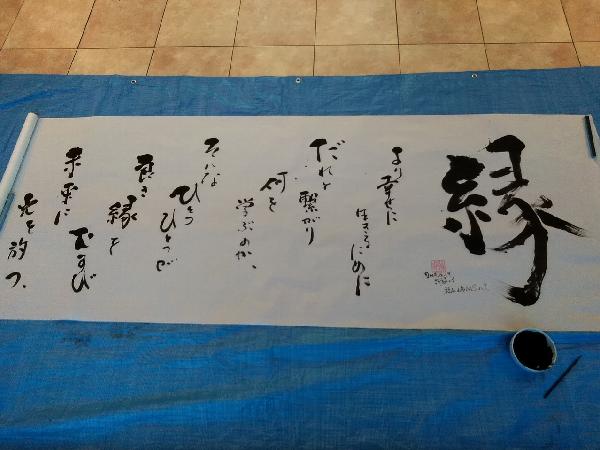 縁
より幸せに
生きるために
だれと
繋がり
何を
学ぶのか、
そんな
ひとつ
ひとつが
良き
縁を
むすび
未来に
光を放つ、